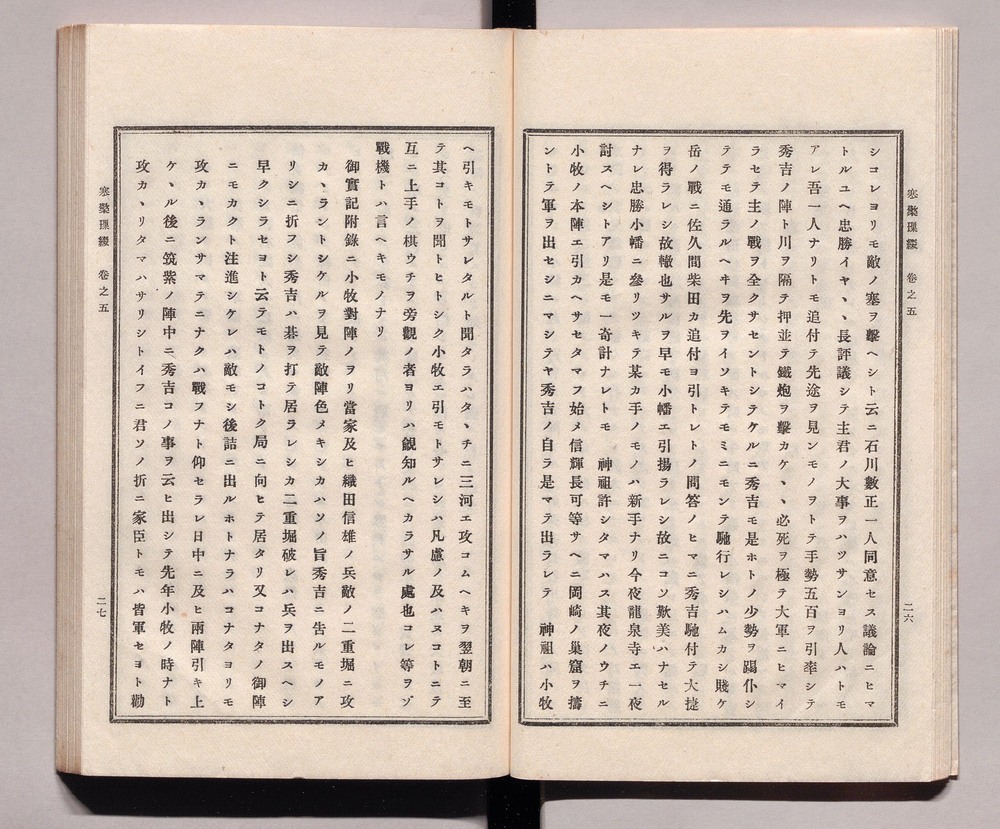 シコレヨリモ敵ノ塞ヲ擊ヘシト云ニ石川數正一人同意セス議論ニヒマ
トルユヘ忠勝イヤヽヽ長評議シテ主君ノ大事ヲハツサンヨリ人ハトモ
アレ吾一人ナリトモ追付テ先途ヲ見ンモノヲトテ手勢五百ヲ引率シテ
秀吉ノ陣ト川ヲ隔テ押並テ鐵炮ヲ擊カケヽヽ必死ヲ極テ大軍ニヒマイ
ラセテ主ノ戰ヲ全クサセントシテケルニ秀吉モ是ホトノ少勢ヲ蹋仆シ
テテモ通ラルヘキヲ先ヲイソキテモミニモンテ馳行レシハムカシ賤ケ
岳ノ戰ニ佐久間柴田カ追付ヨ引トレトノ問答ノヒマニ秀吉馳付テ大捷
ヲ得ラレシ故轍也サルヲ早モ小幡エ引揚ラレシ故ニコソ歎美ハナセル
ナレ忠勝小幡ニ參リツキテ某カ手ノモノハ新手ナリ今夜龍泉寺エ一夜
討スヘシトアリ是モ一奇計ナレトモ 神祖許シタマハス其夜ノウチニ
小牧ノ本陣エ引カヘサセタマフ始メ信輝長可等サヘニ岡崎ノ巢窟ヲ擣
ントテ軍ヲ出セシニマシテヤ秀吉ノ自ラ是マテ出ラレテ 神祖ハ小牧
卷之五
二六
ヘ引キモトサレタルト聞タラハタヽチニ三河エ攻コムヘキヲ翌朝ニ至
テ其コトヲ聞トヒトシク小牧エ引モトサレシハ凡慮ノ及ハヌコトニテ
互ニ上手ノ棋ウチヲ旁觀ノ者ヨリハ覰知ルヘカラサル處也コレ等ヲゾ
戰機トハ言ヘキモノナリ
御實記附錄ニ小牧對陣ノヲリ當家及ヒ織田信雄ノ兵敵ノ二重堀ニ攻
カヽラントシケルヲ見テ敵陣色メキシカハソノ旨秀吉ニ吿ルモノア
リシニ折フシ秀吉ハ碁ヲ打テ居ラレシカ二重堀破レハ兵ヲ出スヘシ
早クシラセヨト云テモトノコトク局ニ向ヒテ居タリ又コナタノ御陣
ニモカクト注進シケレハ敵モシ後詰ニ出ルホトナラハコナタヨリモ
攻カヽランサマテニナクハ戰フナト仰セラレ日中ニ及ヒ兩陣引キ上
ケヽル後ニ筑紫ノ陣中ニ秀吉コノ事ヲ云ヒ出シテ先年小牧ノ時ナト
攻カヽリタマハサリシトイフニ君ソノ折ニ家臣トモハ皆軍セヨト勸
卷之五
二七